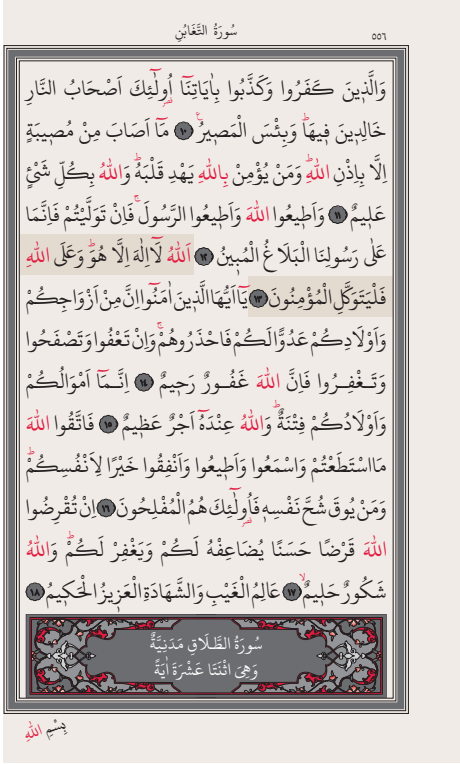 سُورَةُ التَّغَابُنِ
٥٥٦
وَالَّذ۪ينَ كَفَرُوا وَكَذَّبُوا بِاٰيَاتِنَٓا اُو۬لٰٓئِكَ اَصْحَابُ النَّارِ
خَالِد۪ينَ ف۪يهَاۜ وَبِئْسَ الْمَص۪يرُ۟ ﴿١٠﴾ مَٓا اَصَابَ مِنْ مُص۪يبَةٍ
اِلَّا بِاِذْنِ اللّٰهِۜ وَمَنْ يُؤْمِنْ بِاللّٰهِ يَهْدِ قَلْبَهُۜ وَاللّٰهُ بِكُلِّ شَيْءٍ
عَل۪يمٌ ﴿١١﴾ وَاَط۪يعُوا اللّٰهَ وَاَط۪يعُوا الرَّسُولَۚ فَاِنْ تَوَلَّيْتُمْ فَاِنَّمَا
عَلٰى رَسُولِنَا الْبَلَاغُ الْمُب۪ينُ ﴿١٢﴾ اَللّٰهُ لَٓا اِلٰهَ اِلَّا هُوَۜ وَعَلَى اللّٰهِ
فَلْيَتَوَكَّلِ الْمُؤْمِنُونَ ﴿١٣﴾ يَٓا اَيُّهَا الَّذ۪ينَ اٰمَنُٓوا اِنَّ مِنْ اَزْوَاجِكُمْ
وَاَوْلَادِكُمْ عَدُوًّا لَكُمْ فَاحْذَرُوهُمْۚ وَاِنْ تَعْفُوا وَتَصْفَحُوا
وَتَغْفِرُوا فَاِنَّ اللّٰهَ غَفُورٌ رَح۪يمٌ ﴿١٤﴾ اِنَّمَٓا اَمْوَالُكُمْ
وَاَوْلَادُكُمْ فِتْنَةٌۜ وَاللّٰهُ عِنْدَهُٓ اَجْرٌ عَظ۪يمٌ ﴿١٥﴾ فَاتَّقُوا اللّٰهَ
مَا اسْتَطَعْتُمْ وَاسْمَعُوا وَاَط۪يعُوا وَاَنْفِقُوا خَيْرًا لِاَنْفُسِكُمْۜ
وَمَنْ يُوقَ شُحَّ نَفْسِه۪ فَاُو۬لٰٓئِكَ هُمُ الْمُفْلِحُونَ ﴿١٦﴾ اِنْ تُقْرِضُوا
اللّٰهَ قَرْضًا حَسَنًا يُضَاعِفْهُ لَكُمْ وَيَغْفِرْ لَكُمْۜ وَاللّٰهُ
شَكُورٌ حَل۪يمٌۙ ﴿١٧﴾ عَالِمُ الْغَيْبِ وَالشَّهَادَةِ الْعَز۪يزُ الْحَك۪يمُ ﴿١٨﴾
سُورَةُ الطَّلَاقِ مَدَنِيَّةٌ
وَهِيَ اثْنَتَا عَشْرَةَ اٰيَةً
بِسْمِ اللّٰهِ